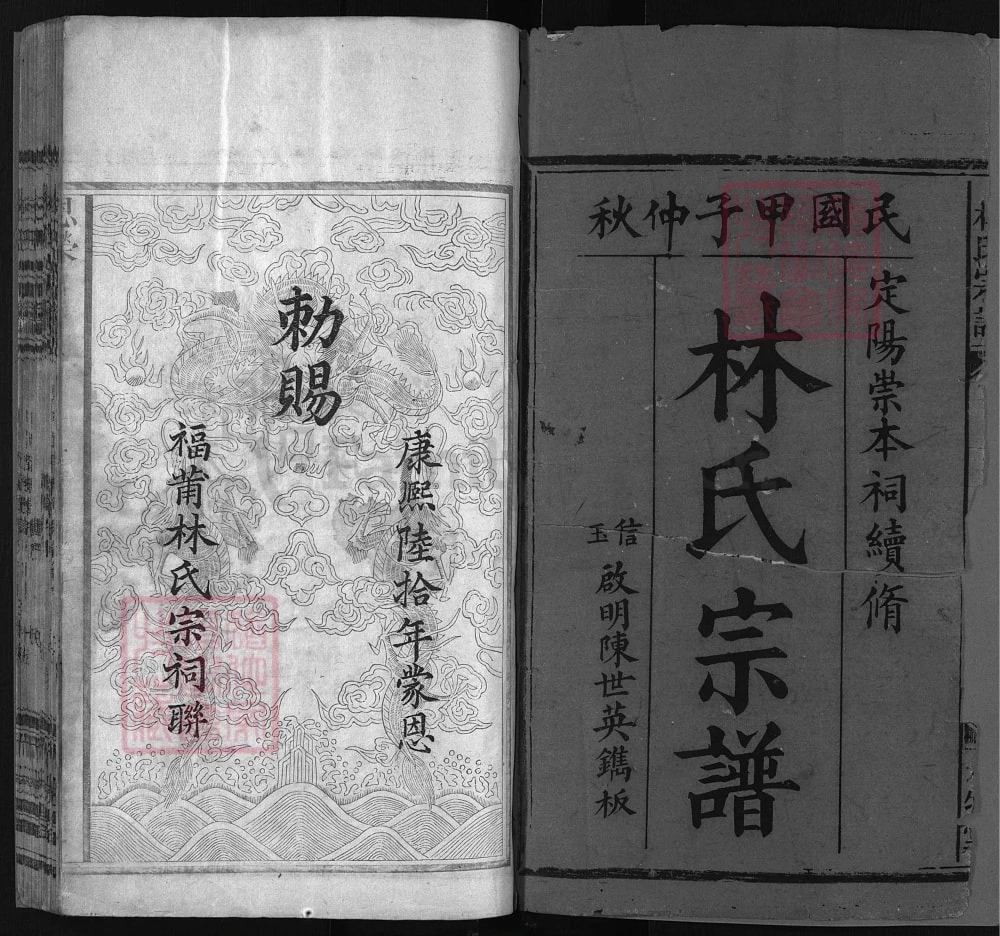 民國甲子仲秋
定陽崇本祠續脩
林氏宗譜
信玉
啟明陳世英鐫板
康熙陸拾年蒙恩
勅賜
福莆林氏宗祠聯